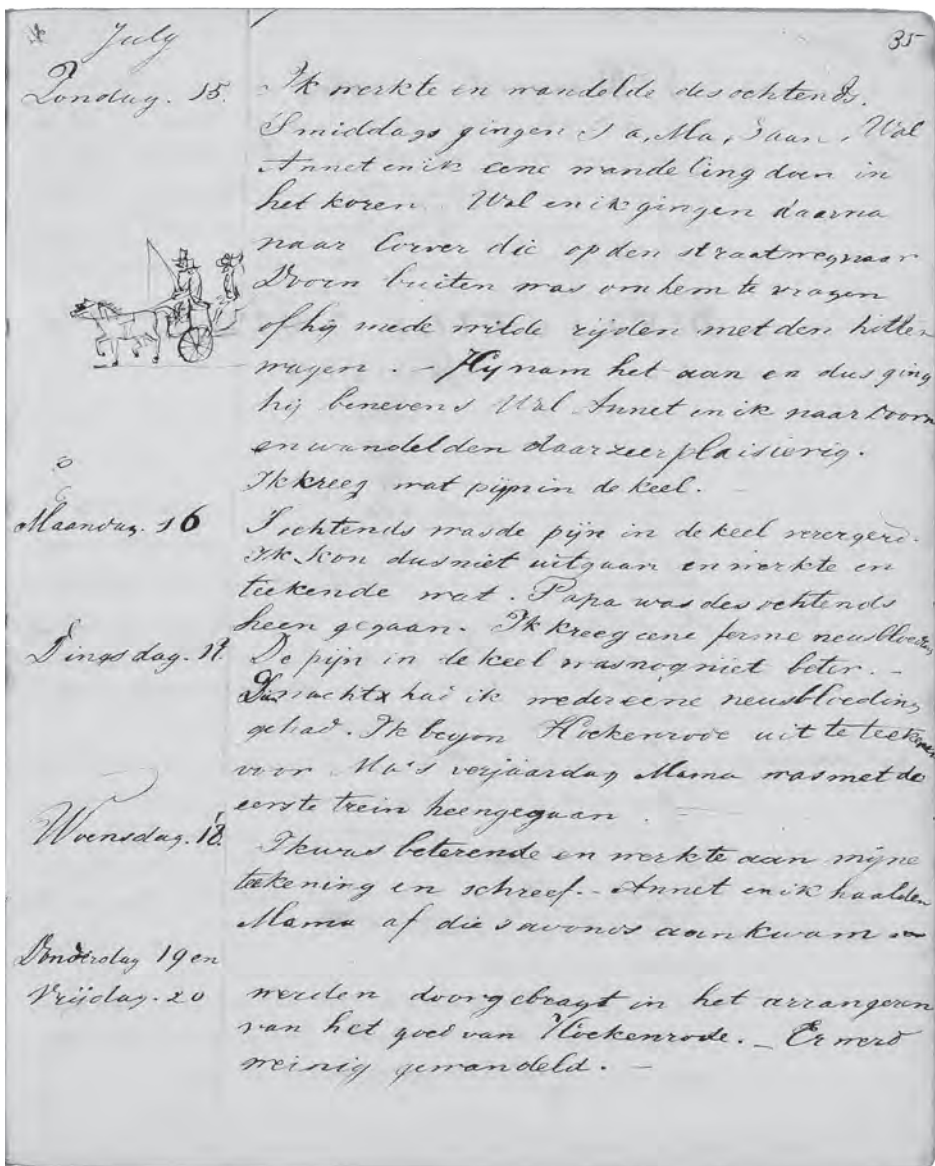 July
35
Zondag. 15. Ik werkte en wandelde des ochtends.
Smiddags gingen Pa, Ma, Daan, Wal
Annet en ik eene wandeling doen in
het koren. Wal en ik gingen daarna
naar Corver die op den straatweg naar
Doorn buiten was om hem te vragen
of hij mede wilde rijden met den hitten
wagen. - Hij nam het aan en dus ging
hij benevens Wal Annet en ik naar Doorn
en wandelden daar zeer plaisierig.
Ik kreeg wat pijn in de keel. -
Maandag. 16 Sochtends was de pijn in de keel verergerd.
Ik kon dus niet uitgaan en werkte en
teekende wat. Papa was des ochtends
heen gegaan. Ik kreeg eene ferme neusbloeding
Dingsdag. 17. De pijn in de keel was nog niet beter. -
nachts had ik weder eene neusbloeding
gehad. Ik begon Hoekenrode uit te teekenen
voor Ma's verjaardag Mama was met de
eerste trein heengegaan. -
Woensdag. 18. Ik was beterende en werkte aan mijne
teekening en schreef. - Annet en ik haalden
Mama af die savonds aankwam -
Donderdag 19 en
Vrijdag. 20 werden doorgebragt in het arrangeren
van het goed van Hoekenrode. - Er werd
weinig gewandeld. -